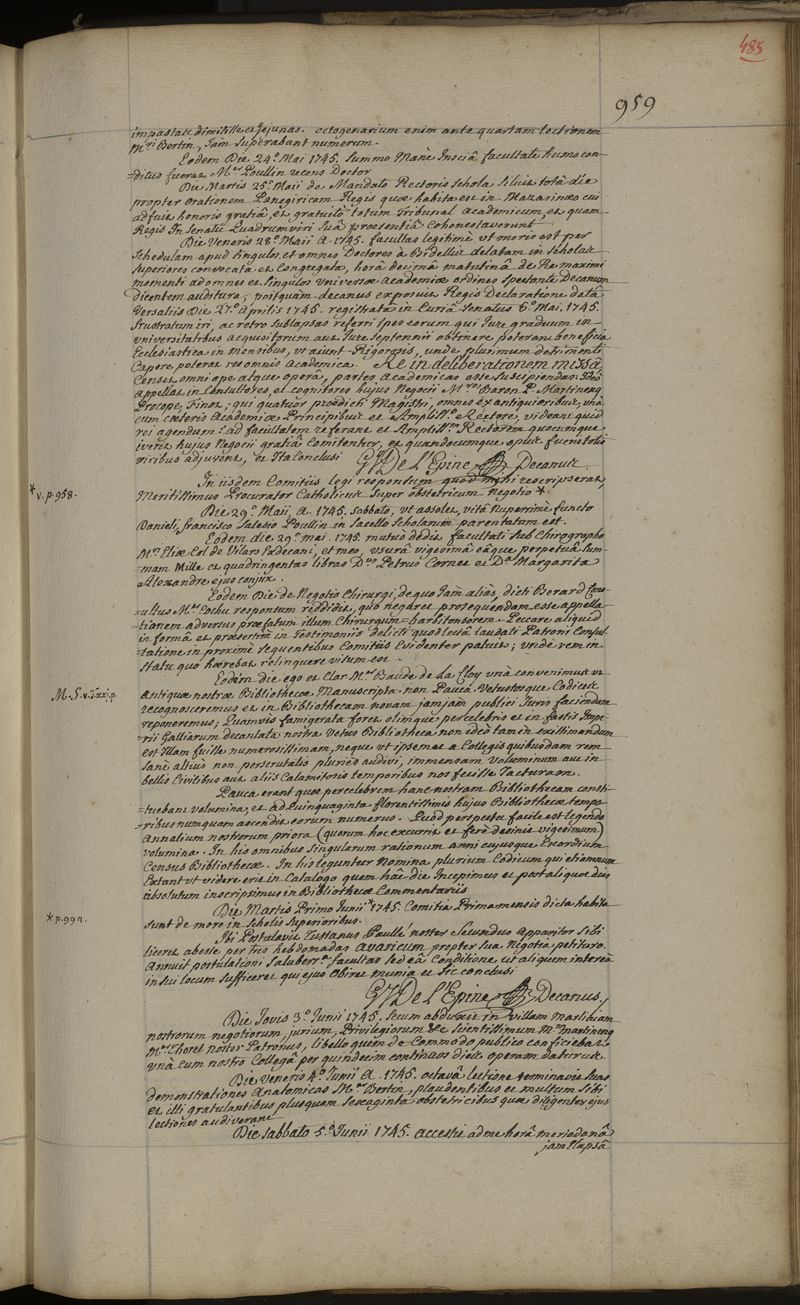 485
959
impastas dimitille et jejunas. octogenarium enim ante quartam lectionem
M.ri Bertin, Jam superabant numerum.
Eodem Die 24.º Mai 1745. Summo Manè Insciâ facultate humo con-
=ditus fuerat M.er Poullin recens Doctor
Die Martis 25.º Maii de Mandato Rectoris Schola Siluit totâ die
propter Orationem Panegiricam Regis quæ habita est in Mazarinæo cui
adfuit honoris gratiâ, et gratuitò totum Tribunal Academicum, et quam
Regis In Senatu Quadrumviri Suâ præsentiâ Cohonestaverunt
Die Veneris 28.º Maii A. 1745. facultas legitimè ut moris est per
Schedulam apud Singulos et omnes Doctores à Bidellis delatam in scholas
Superiores convocata et Congregata, horâ decimâ matutinâ de Re maximi
momenti ad omnes et Singulos universæ academiæ ordines Spectante Decanum
dicentem auditura; postquam decanus exposuit Regis Declaratione datâ
Versaliis Die 27.º Aprilis 1745. registratâ in Curiâ Senatus 6.º Mai. 1745.
frustratum iri, ac retro sublapsas referri Spes eorum qui Jure graduum in
universitatibus acquisitorum aut Jure Septennii obtinere poterant beneficia
Ecclesiastica in mensibus, ut aiunt Rigorosis, unde plurimum detrimenti
Capere poterat res omnis Academica. Re in deliberationem missâ,
Censet omni ope atque operâ, partes Academicas esse Suscipiendas. Ideò
appellat in Consultores, et cognitores hujus Negotii M.ros Baron P. Martinenq
Procope, Finot, qui quatuor prædicti Magistri, omnes ex antiquioribus, unà
cum cæteris Academiæ Principibus et Ampliss.º Rectore, videant quid
rei agendum: ad facultatem referant et Ampliss.m Rectorem quocumque
iverit hujus Negocii gratiâ Comitentur, et quandocumque opus fuerit totis
viribus adjuvent, et Ita Conclusi G J De L'Epine Decanus.
In iisdem Comitiis legi responsum quod mihi rescripserat,
Meritissimus Procurator Catholicus Super obstetricum Negotio *
* v. p. 958.
Die 29.º Maii, A. 1745. Sabbato, ut assolet, vitâ Nuperrimè functo
Danieli, francisco Salesio Poullin in Sacello Scholarum parentatum est.
Eodem die 29.º mai 1745. mutuò dedit facultati Sub Chirographo
M.ri Eliæ Col de Vilars Exdecani, et meo, usurâ vigesimâ eâque perpetuâ Sum-
=mam Mille et quadringentas libras D.nus Petrus Cornet et D.a Margarita
Alexandre ejus conjux.
Eodem Die de Negotio Chirurgi, de quo Jam aliàs, dicti Berard Cons-
=ultus M.er Cochu responsum reddidit, quo negaret prosequendam esse appella-
=tionem adversus præfatum illum Chirurgum=barbitonsorem. Peccare aliquid
in formâ et præsertim in Testimoniis delicti quod lectâ laudati Patroni Consul-
=tatione in proximè Sequentibus Comitiis Evidenter patuit; unde rem in
Statu quo hærebat relinquere visum est.
Eodem die ego et Clar M.er Baude de La Cloy unà convenimus ut
Antiquæ nostræ Bibliothecæ Manuscripta non Pauca Vetustosque Codices
recognosceremus et in Bibliothecam novam jamjam publici Juris faciendam
reponeremus; Quamvis famigerata foret olimque percelebris et in fastis Impe-
=rii Galliarum decantata nostra Vetus Bibliotheca non ideò tamen existimandum
est Illam fuisse numerosissimam, neque ut ipsemet a Collegis quibusdam rem
sanè altius non perscrutatis pluries audivi, immensam Voluminum aut in
bellis Civilibus aut aliis Calamitosis temporibus nos fecisse Jacturam.
M. S. v. Taxij. p.
Pauca erant quæ percelebrem hanc nostram Bibliothecam consti-
=tuebant volumina, et ad Quinquaginta florentissimis hujus Bibliothecæ tempo-
=ribus numquam ascendit eorum numerus. Quod perspectu facile est legendo
Annalium nostrorum priora (quorum hoc excurrit et ferè desinit vigesimum)
volumina. In his omnibus Singularum rationum anni cujusque Exordium
Census Bibliothecæ. In his leguntur Nomina plurium Codicum qui etiamnum
Extant ut videre erit in Catalogo quem hâc die Incepimus et post aliquot dies
absolutum inscripsimus in Bibliothecæ Commentariis
Die Martis Primo Junii * 1745. Comitia Prima mensis dicta habita
sunt de more in Scholis Superioribus.
* p. 991.
Ibi Postulavit Justanus Paulle noster Secundus Apparitor Sibi
liceret abesse per tres hebdomadas avaricum propter Sua Negotia petituro.
Annuit postulationi Saluberr.a facultas sed eâ Conditione ut aliquem intereà
in Sui locum Sufficeret qui ejus Obiret munia et Sic conclusi
G J De L'Epine Decanus.
Die Jovis 3.º Junii 1745. Secum abduxit in villam Marlinam
nostrorum negotiorum, jurium, Privilegiorum &c Scientissimum M.um Martinenq
M.er Thoret noster Patronus, libello quem de Commodo publico conficiebat
unà cum nostro Collegâ per quindecim continuos dies operam daturus.
Die Veneris 4.º Junii A. 1745. octavâ lectione terminavit Suas
demonstrationes Anatomicas M.er Bertin, plaudentibus et multum Sibi
et illi gratulantibus plusquam Sexaginta obstetricibus quæ diligenter ejus
lectiones audiverant
Die Sabbato 5.º Junii 1745. accessit ad me horâ meridianâ
jam Elapsâ